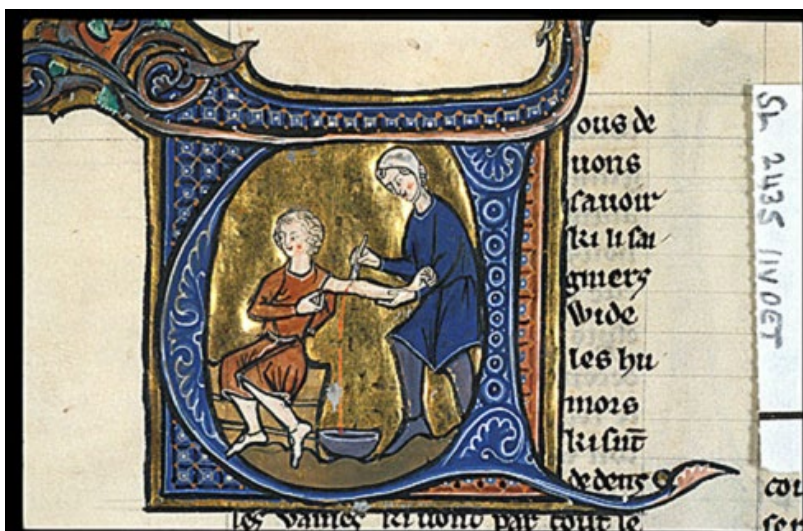 ous de
uons
sauoir
ki li sai
gniers
wide
les hu
mors
ki sūt
dedens
les vaines ki uont par tout le
Sl 2435 11V DET